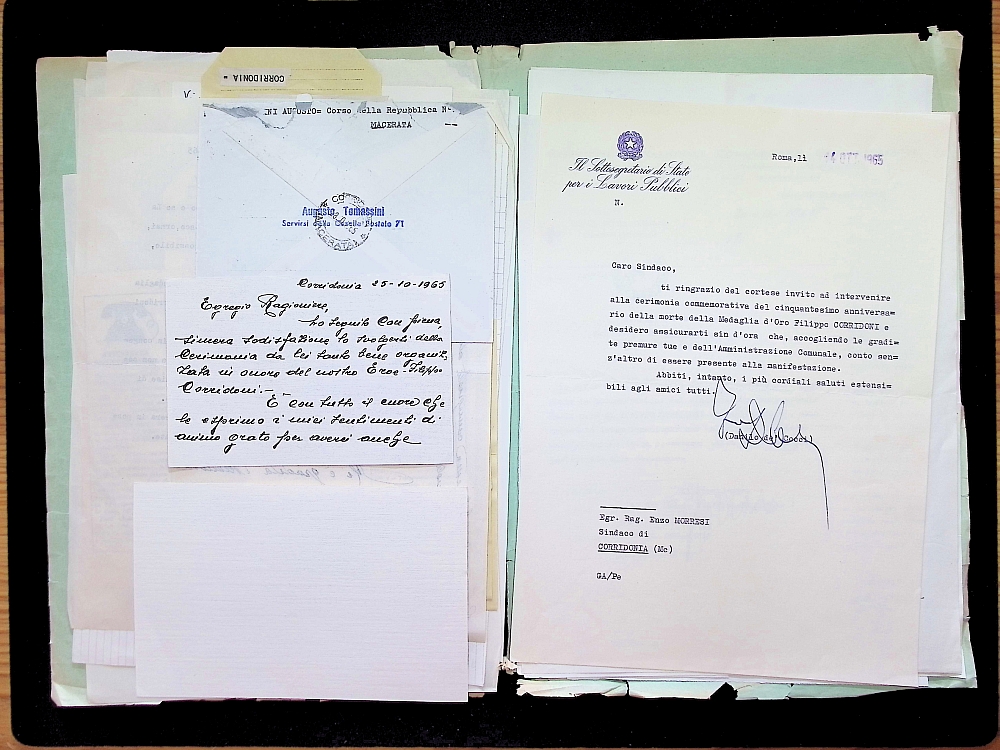 CORRIDONIA =
V.
INI AUGUSTO= Corso della Repubblica N.
MACERATA
Augusto Tomassini
Servirsi della Casella Postale 71
MACERATA
Corridonia 25-10-1965
Egregio Ragioniere,
ho seguito con piena,
sincera sodisfazione lo svolgersi della
Cerimonia da lei tanto bene organiz,
zata in onore del nostro Eroe Filippo
Corridoni.—
È con tutto il cuore che
le esprimo i miei sentimenti di
animo grato per avermi anche
Il Sottosegretario di Stato
per i Lavori Pubblici
N.
Roma,lì 4 OTT 1965
Caro Sindaco,
ti ringrazio del cortese invito ad intervenire
alla cerimonia commemorativa del cinquantesimo anniversa=
rio della morte della Medaglia d'Oro Filippo CORRIDONI e
desidero assicurarti sin d'ora che, accogliendo le gradi=
te premure tue e dell'Amministrazione Comunale, conto sen=
z'altro di essere presente alla manifestazione.
Abbiti, intanto, i più cordiali saluti estensi=
bili agli amici tutti.
(Danilo de' Cocci)
Egr. Rag. Enzo MORRESI
Sindaco di
CORRIDONIA (Mc)
GA/Pe